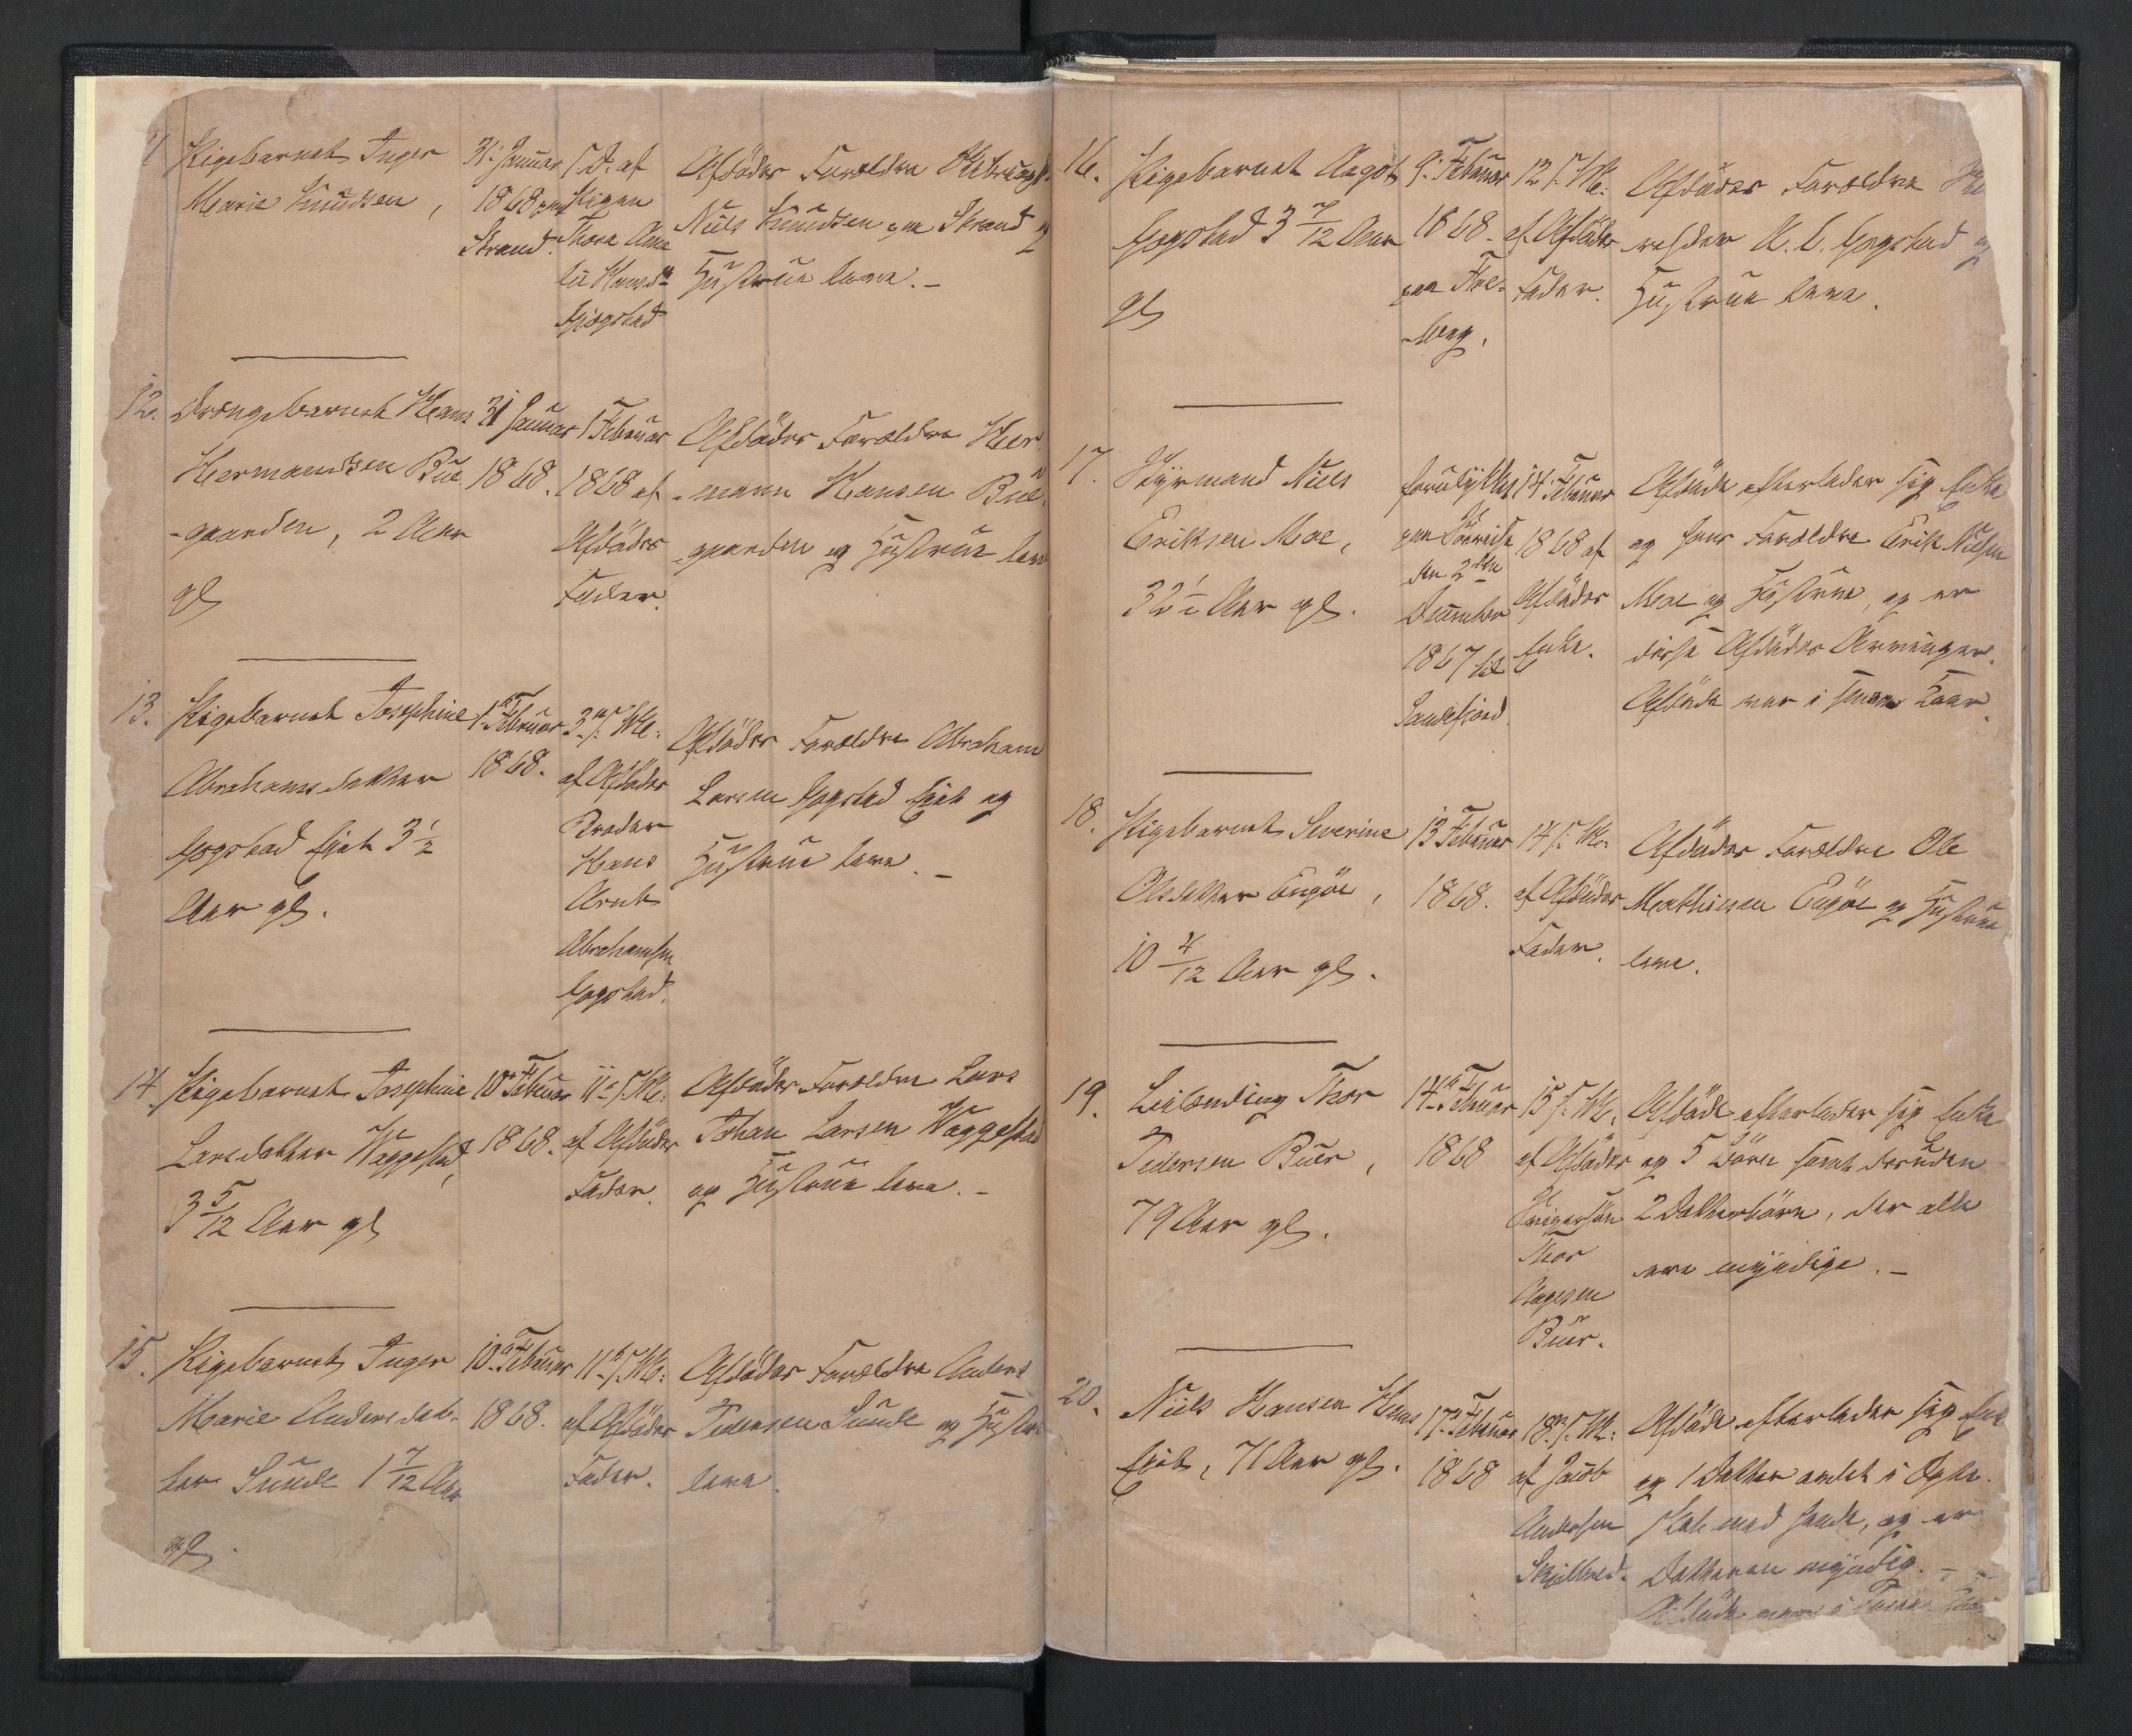 Pigebarnet Inger
Marie Knudsen,
31 Januar
1868 paa
Strand.
S. D. af
Pigen
Thora Ama
lie Hansd.
Gjogstad
Afdødes Forældre
Niels Knudsen paa Strand og
Hustrue leve. –
12.
Drengebarnet Hans
Hermandsen Bue
-gaarden, 2 Aar
gl
31 Januar
1868.
1 Februar
1868 af
Afdødes
Fader.
Afdødes Forældre Her
-mann Hansen Bue
gaarden og Hustrue leve
13.
Pigebarnet Josephine
Abrahamsdatter
Gogstad Eiet 3 1/2
Aar gl.
1ste Februar
1868.
3die s. M.
af Afdødes
Broder
Hans
Arnt
Abrahamsen
Gogstad.
Afdødes Forældre Abraham
Larsen Gogstad Eiet og
Hustrue leve. –
14
Pigebarnet Josephine
Larsdatter Vaggestad,
3 5/12 Aar gl
10de Februar
1868.
11te s. M.
af Afdødes
Fader.
Afdødes Forældre Lars
Johan Larsen Vaggestad
og Hustrue leve. –
15.
Pigebarnet Inger
Marie Andersdat-
ter Sunde 1 7/12 Aar
gl.
10de Februar
1868.
11te s. M.
af Afdødes
Fader.
Afdødes Forældre Anders
Pedersen Sunde og Hustrue
leve.
16.
Pigebarnet Aagot
Gogstad 3 7/12 Aar
gl
9de Februar
1868.
paa
-berg.
12 s. M.
af Afdødes
Fader.
Afdødes Forældre
A. C. Gogstad og
Hustrue leve.
17.
Styrmand Niels
Eriksen Moe,
32 1/2 Aar gl.
forulykket
paa Søereise
den 2den
December
1867 til
Sandefjord
14 Februar
1868 af
Afdødes
Enke.
Afdøde efterlader sig Enke
og hans Forældre Erik Nielsen
Moe og Hustrue, og er
disse Afdødes Arvinger.
Afdøde var i Faar
18.
Pigebarnet Severine
Olsdatter Engøe,
10 4/12 Aar gl.
13 Februar
1868.
14 s. M.
af Afdødes
Fader.
Afdødes Forældre Ole
Mathiesen Engøe og Hustrue
leve.
19.
Leilænding Thor
Pedersen Buer,
79 Aar gl.
14de Februar
1868
15 s. M.
af Afdødes
Svigersøn
Thor
Aagesen
Buer.
Afdøde efterlader sig Enke
og 5 Børn samt desuden
2 Datterbørn, der alle
ere myndige. –
20.
Niels Hansen
Eiet, 71 Aar gl.
17de Februar
1868
18de s. M.
af Jacob
Andersen
Skjelbred.
Afdøde efterlader sig Enke
og 1 Datter avlet i Ægte-
skab med hende, og er
Datteren myndig. –
Afdøde var i